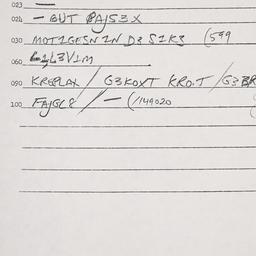 023 —
024 — BUT PAJS3X
030 MOT1GESN IN D3 S1K3 (599
060 L3V1M
090 KREPLAX / G3KOXT KROIT / G3BR
100 FAJGL8 / — (1149020